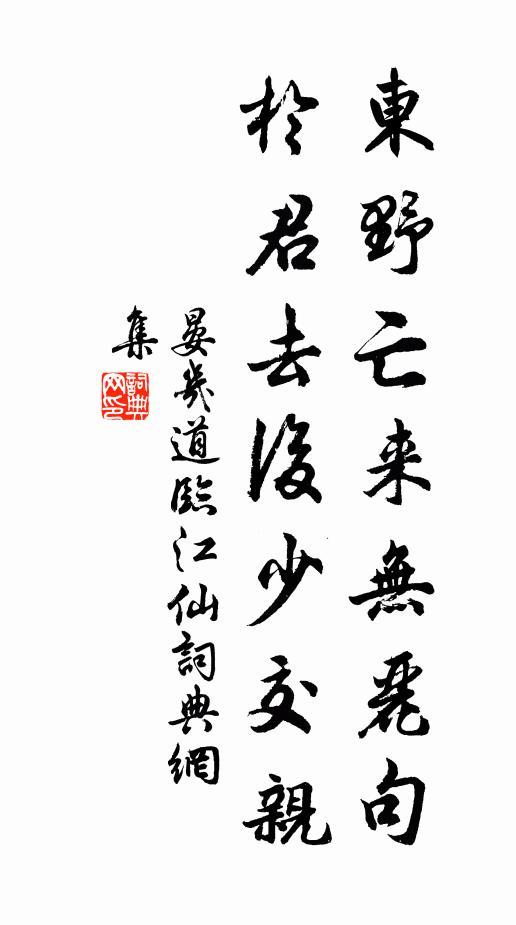 東野亡来無麗句
於君去後少交親
晏幾道臨江仙詞典網
集
詞典網印